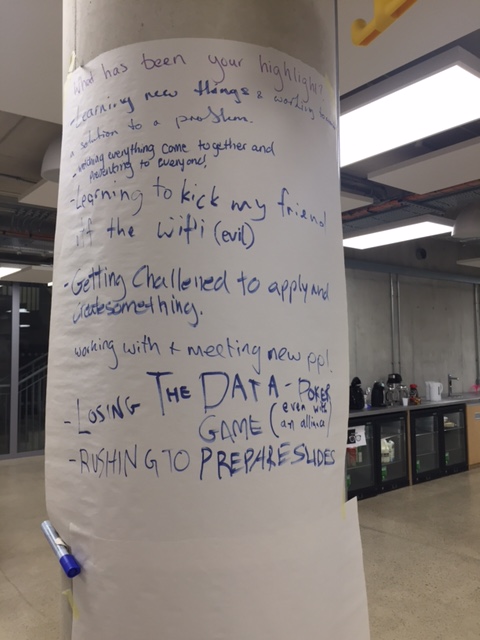 What has been your highlight?
-Learning new things & working towards
a solution to a problem.
- watching everything come together and
presenting to everyone,
-Learning to kick my friend
off the wifi (evil)
-Getting Challened to apply and
createsomething.
working with + meeting new ppl.
-LOSING THE DATA-POKER
GAME (even with
an allince)
-RUSHING TO PREPARE SLIDES